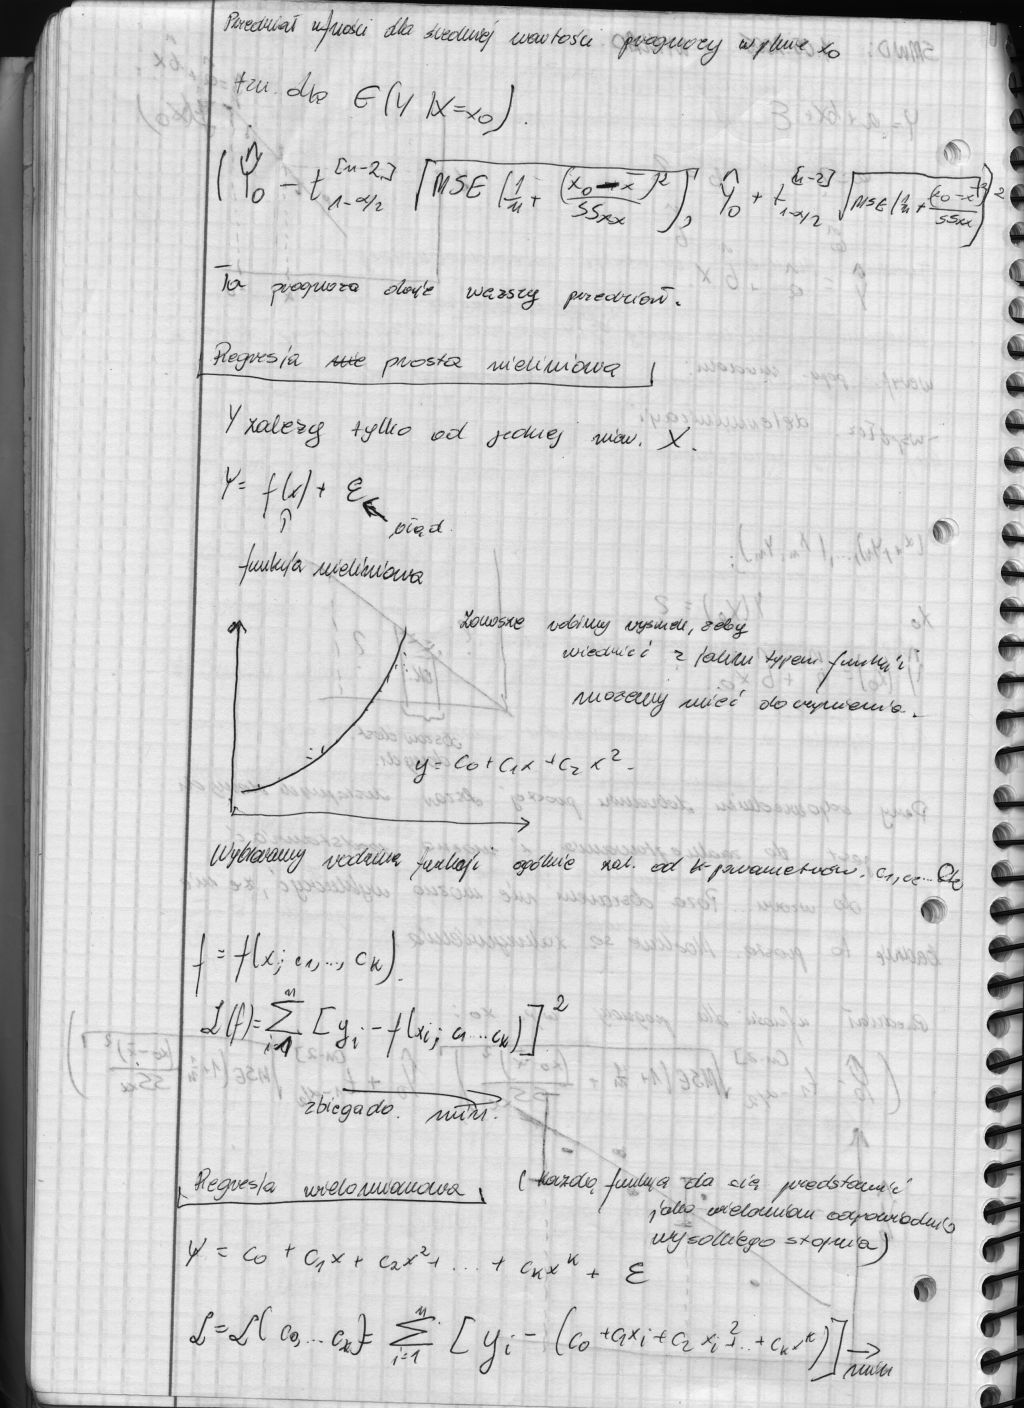 Przedział ufności dla średniej wartości prognozy w pkcie x₀
tzn. dla E(Y|X=x₀).
(Ŷ₀ - t_{1-α/2}^{[n-2]} √(MSE(1/n + (x₀-x̄)²/SSxx)), Ŷ₀ + t_{1-α/2}^{[n-2]} √(MSE(1/n + (x₀-x̄)²/SSxx)))
Ta prognoza daje węższy przedział.
Regresja prosta nieliniowa
Y zależy tylko od jednej zmien. X.
Y = f(x) + ε
błąd.
funkcja nieliniowa
Zawsze robimy rysunek, żeby
wiedzieć z jakim typem funkcji
możemy mieć do czynienia.
y = c₀ + c₁x + c₂x².
Wybieramy rodzinę funkcji ogólnie zal. od k-parametrów. c₁, c₂... c_k
f = f(x; c₁, .., c_k).
L(f) = Σ_{i=1}^{n} [y_i - f(x_i; c₁...c_k)]²
zbiega do. min.
Regresja wielomianowa
(każdą funkcję da się przedstawić
jako wielomian odpowiednio
wysokiego stopnia)
Y = c₀ + c₁x + c₂x² + ... + c_k x^k + ε
L = L(c₀,...c_k) = Σ_{i=1}^{n} [y_i - (c₀ + c₁x_i + c₂x_i² + .. + c_k x^k)] → min